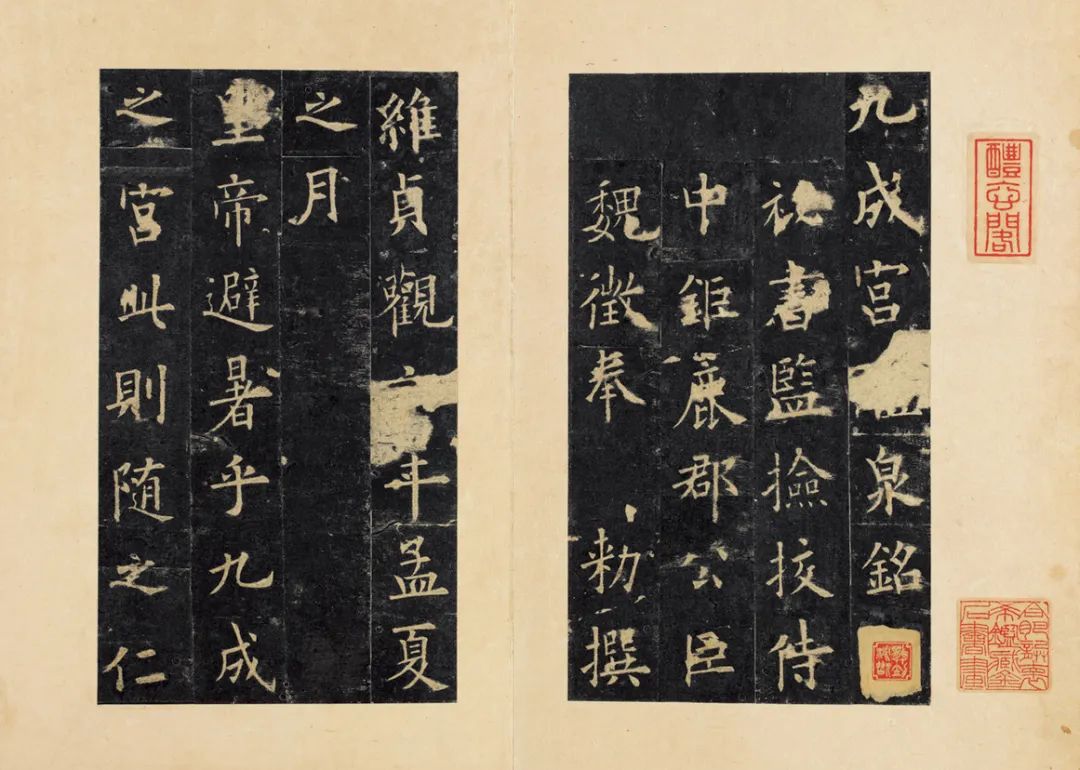 九成宮醴泉銘
祕書監撿挍侍
中鉅鹿郡公臣
魏徵奉 勑撰
維貞觀六年孟夏
之月
皇帝避暑乎九成
之宮此則随之仁